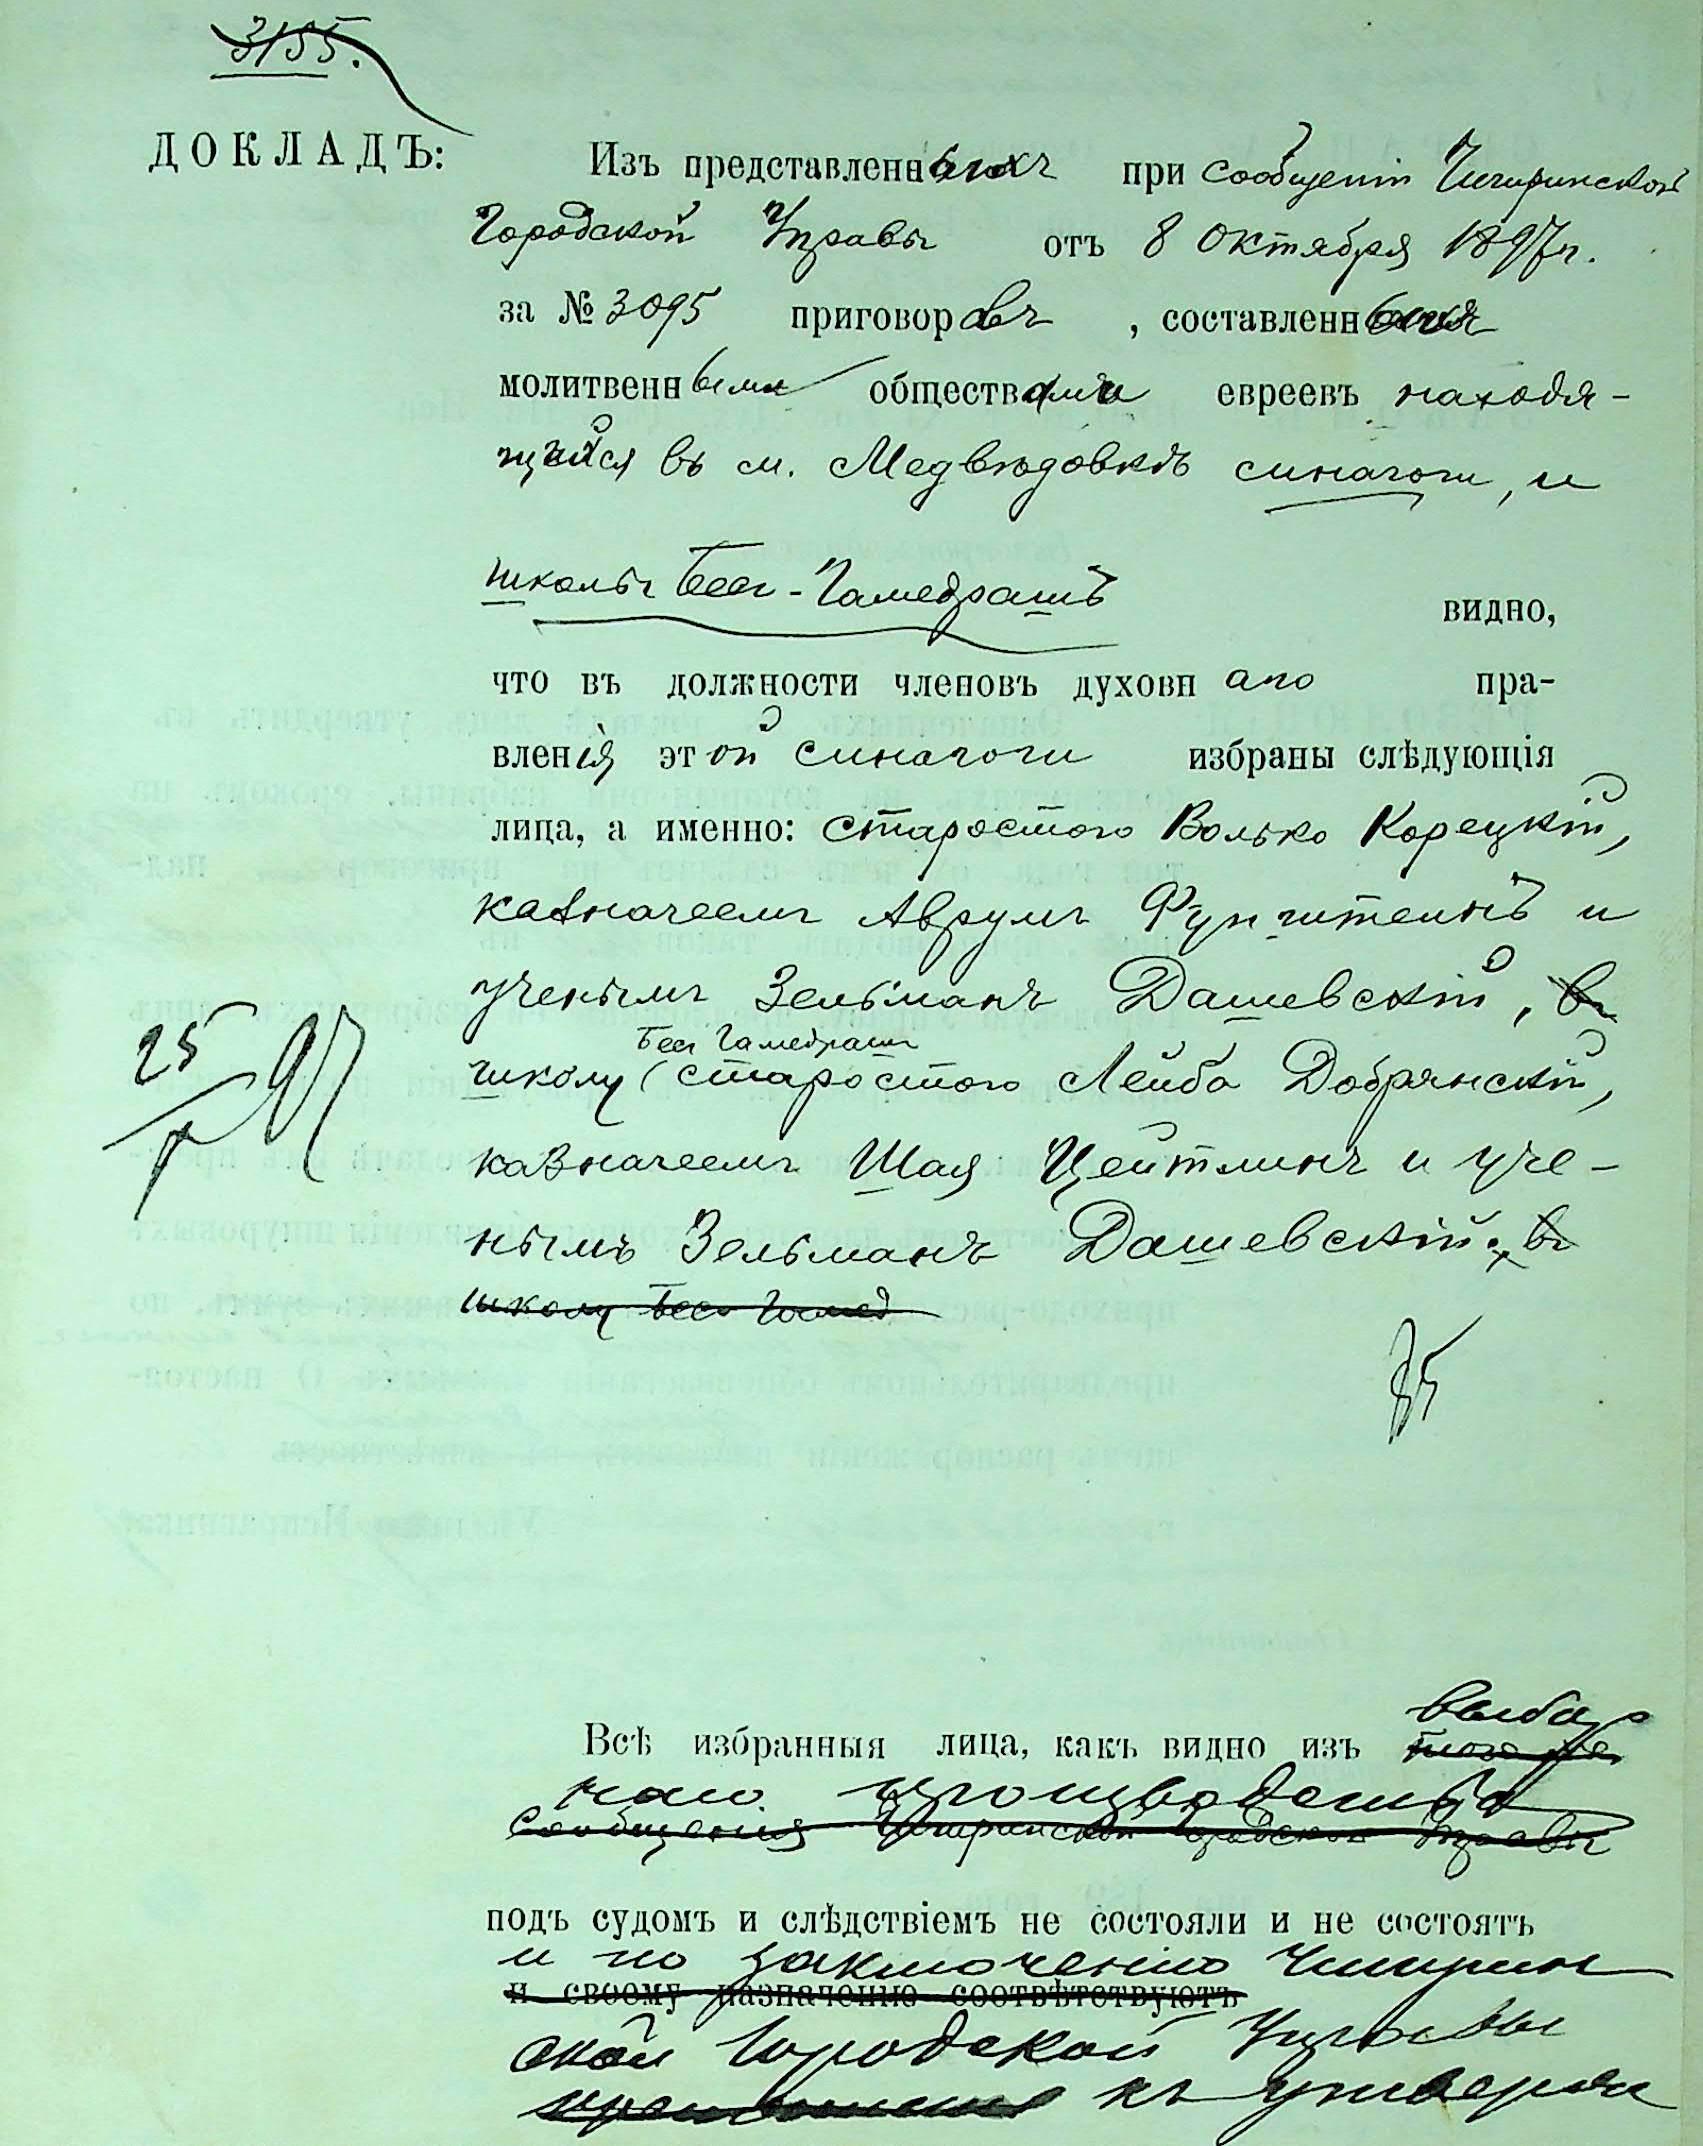 3155.
ДОКЛАДЪ:
Изъ представленныхъ при сообщеніи Чигиринской
Городской Управы отъ 8 Октября 1897 г.
за № 3095 приговоровъ, составленныхъ
молитвенными обществами евреевъ находя-
щейся въ м. Медвѣдовкѣ синагоги, и
школы Бесъ-Гамедрашъ видно,
что въ должности членовъ духовнаго пра-
вленія этой синагоги избраны слѣдующія
лица, а именно: старостою Волько Корецкій,
казначеемъ Аврумъ Фунштейнъ и
ученымъ Зельманъ Дашевскій, въ
Бесъ Гамедрашъ
школу старостою Лейба Добрянскій,
казначеемъ Шая Цейтлинъ и уче-
нымъ Зельманъ Дашевскій, въ
школу Бесъ Гамед
25
97
Всѣ избранныя лица, какъ видно изъ выбор
наго производства
сообщенія Чигиринской Городской Управы
подъ судомъ и слѣдствіемъ не состояли и не состоятъ
и по заключенію Чигирин
и своему назначенію соотвѣтствуютъ
ской Городской Управы
къ утвержде